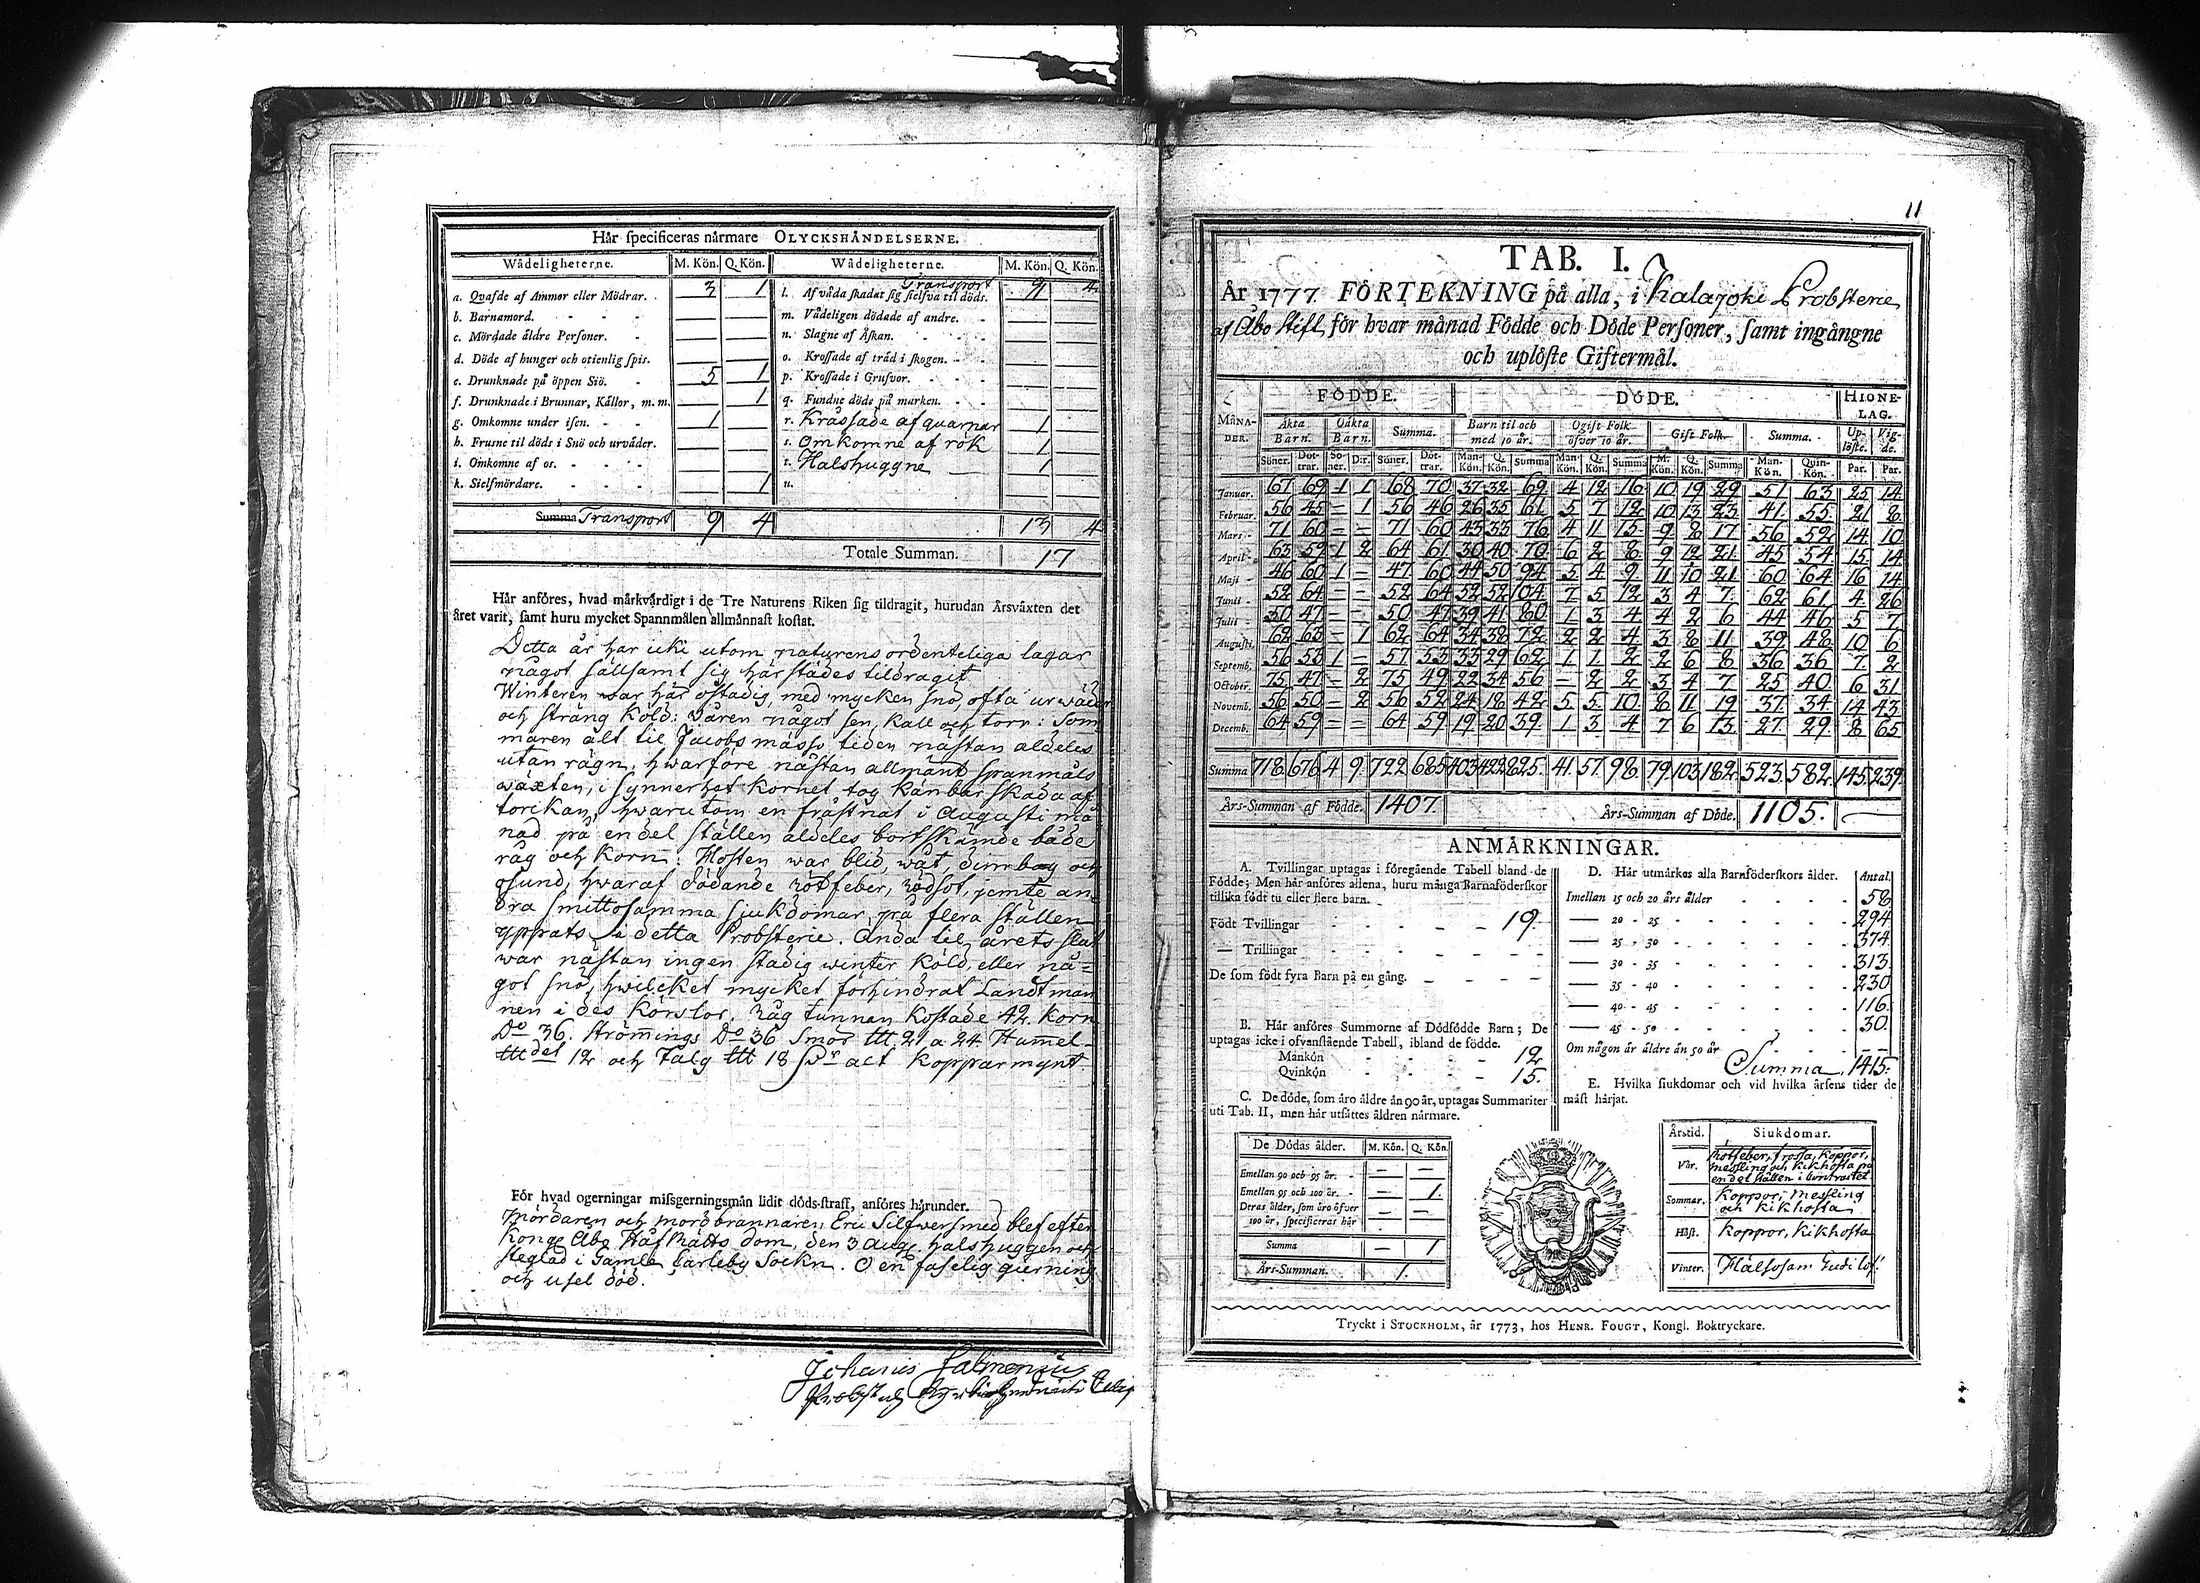 Hår specificeras nårmare OLYCKSHÅNDELSERNE.
Wådeligheterne. M. Kön. Q. Kön. Wådeligheterne. M. Kön. Q. Kön.
Transport
a. Qvafde af Ammor eller Mödrar. 3 1 l. Af våda skadat sig sielfva til döds. 9 4
b. Barnamord. — — m. Vådeligen dödade af andre. — —
c. Mördade åldre Personer. — — n. Slagne af Åskan. — —
d. Döde af hunger och otienlig spis. — — o. Krossade af tråd i skogen. — —
e. Drunknade på öppen Siö. 5 1 p. Krossade i Grufvor. — —
f. Drunknade i Brunnar, Kållor, m. m. — 1 q. Fundne döde på marken. — —
g. Omkomne under isen. 1 — r. Kråssade af quarnar 1 —
h. Frusne til döds i Snö och urvåder. — — s. Omkomne af rök 1 —
i. Omkomne af os. — — t. Halshuggne 1 —
k. Sielfmördare. — 1 u.
Summa Transport 9 4 13 4
Totale Summan. 17
Hår anföres, hvad mårkvårdigt i de Tre Naturens Riken sig tildragit, hurudan Årsvåxten det
året varit, samt huru mycket Spannmålen allmånnast kostat.
Detta år har icke utom naturens ordenteliga lagar
något sällsamt sig härstädes tildragit.
Winteren war här ostadig, med mycken snö, ofta urwäder
och sträng köld: Våren något sen, kall och torr: Som
maren alt til Jacobs mässo tiden nästan aldeles
utan rägn, hwarföre nästan allmänt spanmåls
wäxten, i synnerhet kornet tog kånbar skada af
torckan, hwarutom en fråstnat i Augusti må
nad på en del ställen aldeles bortskämde både
råg och korn: Hösten war blid, wåt, dimbog och
osund, hwaraf dödande rötfeber, rödsot, jemte an
dra smittosamma sjukdomar, på flera ställen
yppats i detta Probsterie. Ända til årets slut
war nästan ingen stadig winter köld, eller nå=
got snö, hwilcket mycket förhindrat Landtman
nen i des körslor. Råg tunnan kostade 42. Korn
Do 36. Strömings Do 36 Smör ttt 21 a 24 Humel
ttt det 12 och Talg ttt 18 Dr alt kopparmynt.
För hvad ogerningar missgerningsmån lidit döds-straff, anföres hårunder.
Mördaren och mordbrännaren Eric Silfwersmed blef efter
Kongl. Åbo HåfRätts dom, den 3 Aug. halshuggen och
steglad i Gamle Carleby Sockn. O en faselig gierning
och usel död.
Johanis Salmenius
11
TAB. I.
År 1777 FÖRTEKNING på alla, i Kalajoki Probsterie
af Åbo Stift, för hvar månad Födde och Döde Personer, samt ingångne
och uplöste Giftermål.
MÅNA- FÖDDE. DÖDE. HIONE-
DER. LAG.
Åkta Oåkta Summa. Barn til och Ogift Folk Gift Folk Summa. Up- Vig-
Barn. Barn. med 10 år. öfver 10 år. löste. de.
Söner. Döt- So- D:r. Söner. Döt- Man- Q. Summa Man- Q. Summa M. Q. Summa Man- Quin- Par. Par.
trar. ner. trar. Kön. Kön. Kön. Kön. Kön. Kön. Kön. Kön.
Januar. 67 69 1 1 68 70 37 32 69 4 12 16 10 19 29 51 63 25 14
Februar. 56 45 — 1 56 46 26 35 61 5 7 12 10 13 23 41 55 21 8
Mars. 71 60 — — 71 60 43 33 76 4 11 15 9 8 17 56 52 14 10
April. 63 59 1 2 64 61 30 40 70 6 2 8 9 12 21 45 54 15 14
Maji 46 60 1 — 47 60 44 50 94 5 4 9 11 10 21 60 64 16 14
Junii 52 64 — — 52 64 52 52 104 7 5 12 3 4 7 62 61 4 26
Julii 50 47 — — 50 47 39 41 80 1 3 4 4 2 6 44 46 5 7
Augusti. 62 63 — 1 62 64 34 38 72 2 2 4 3 8 11 39 48 10 6
Septemb. 56 53 1 — 57 53 33 29 62 1 1 2 2 6 8 36 36 7 2
October. 75 47 — 2 75 49 22 34 56 — 2 2 3 4 7 25 40 6 31
Novemb. 56 50 — 2 56 52 24 18 42 5 5 10 8 11 19 37 34 14 43
Decemb. 64 59 — — 64 59 19 20 39 1 3 4 7 6 13 27 29 8 65
Summa 718 676 4 9 722 685 403 422 825 41 57 98 79 103 182 523 582 145 239
Års-Summan af Födde. 1407. Års-Summan af Döde. 1105. —
ANMÅRKNINGAR.
A. Tvillingar uptagas i föregående Tabell bland de
Födde; Men hår anföres allena, huru många Barnaföderskor
tillika födt tu eller flere barn.
Födt Tvillingar 19.
— Trillingar
De som födt fyra Barn på en gång.
B. Hår anföres Summorne af Dödfödde Barn; De
uptagas icke i ofvanstående Tabell, ibland de födde.
Mankön 12
Qvinkön 15.
C. De döde, som åro åldre ån 90 år, uptagas Summariter
uti Tab. II, men hår utsåttes åldren nårmare.
De Dödas ålder. M. Kön. Q. Kön.
Emellan 90 och 95 år. — —
Emellan 95 och 100 år. — 1.
Deras ålder, som åro öfver — —
100 år, specificeras hår
Summa — 1
Års-Summan. 1.
D. Hår utmårkes alla Barnföderskors ålder. Antal.
Imellan 15 och 20 års ålder 58
— 20 - 25 294
— 25 - 30 374
— 30 - 35 313
— 35 - 40 230
— 40 - 45 116
— 45 - 50 30
Om någon år åldre ån 50 år —
Summa 1415.
E. Hvilka siukdomar och vid hvilka årsens tider de
måst hårjat.
Årstid. Siukdomar.
Vår. Rötfeber, frossa, koppor,
messling och kikhosta på
en del ställen i Contractet
Sommar. Koppor, Messling
och kikhosta
Höst. Koppor, kikhosta
Vinter. Hälsosam Gudi lof.
Tryckt i STOCKHOLM, år 1773, hos HENR. FOUGT, Kongl. Boktryckare.